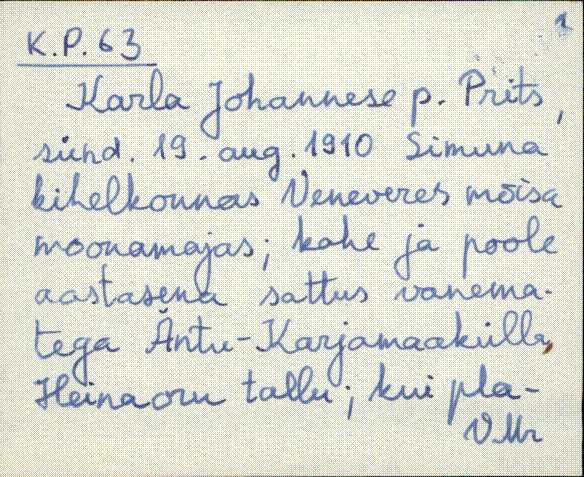 1
K.P.63
Karla Johannese p. Prits,
sünd. 19. aug. 1910 Simuna
kihelkonnas Veneveres mõisa
moonamajas; kahe ja poole
aastasena sattus vanema-
tega Äntu-Karjamaakülla,
Heinaoru tallu; kui pla-
VMr